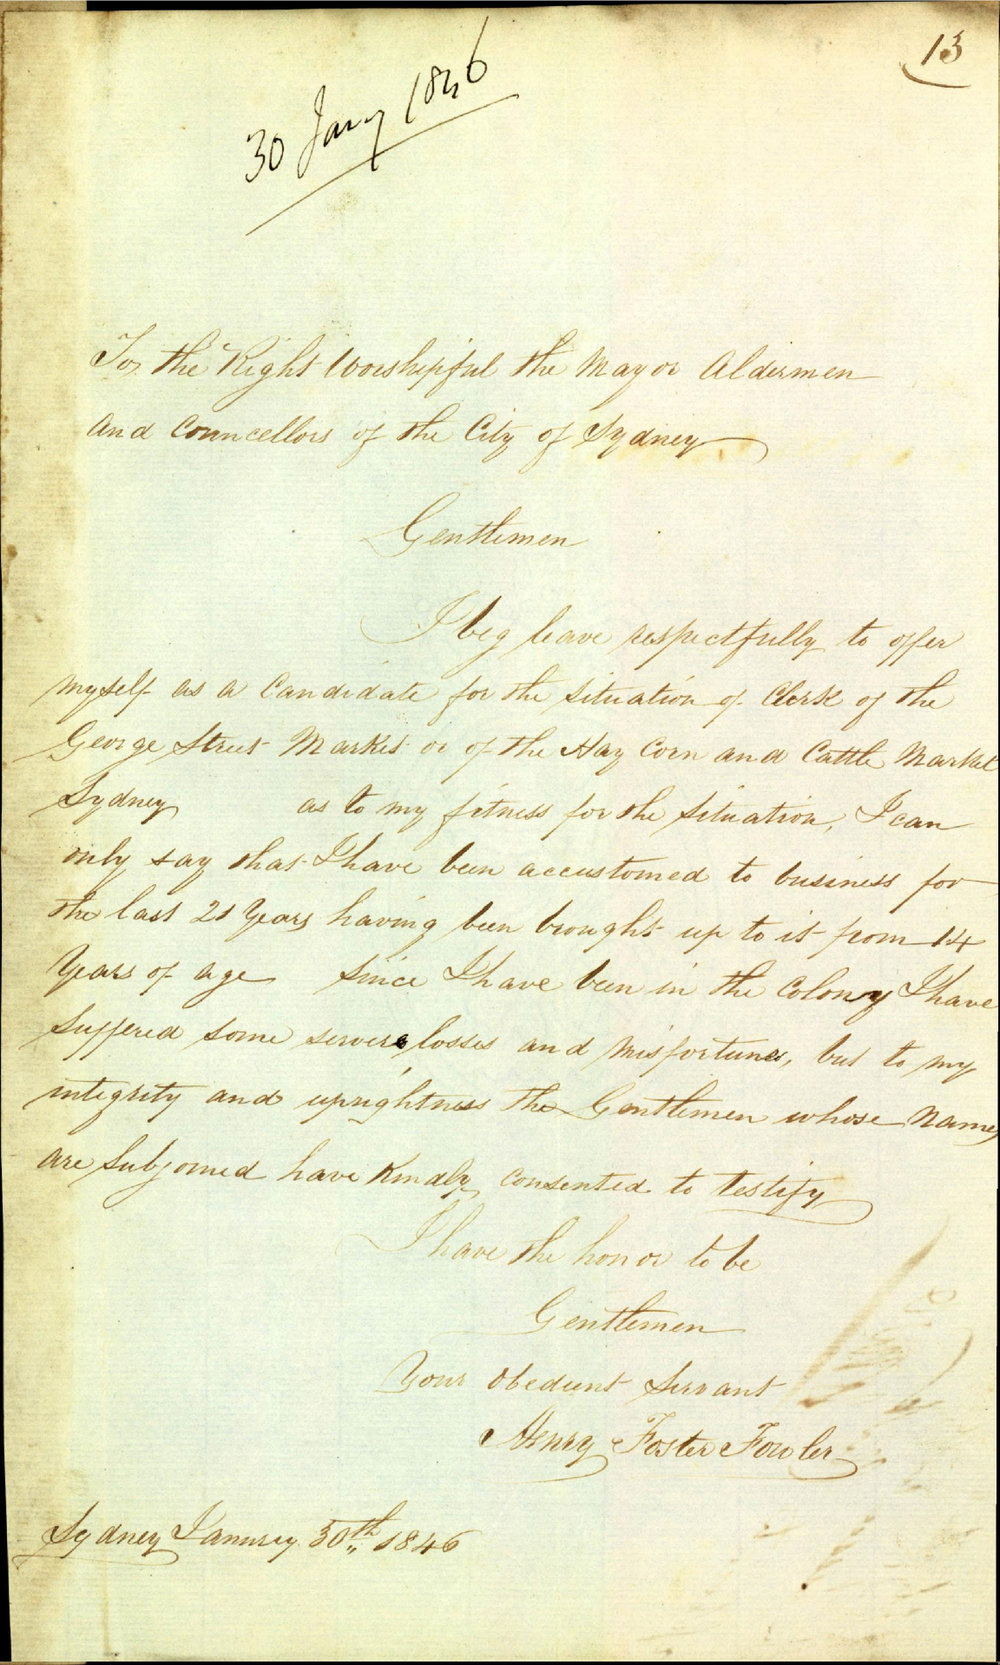 13
30 Jany 1846
To, the Right Worshipful the Mayor Aldermen
and Councellors of the City of Sydney
Gentlemen
I beg leave respectfully to offer
myself as a Candidate for the situation of Clerk of the
George Street Market or of the Hay Corn and Cattle Market
Sydney as to my fitness for the situation, I can
only say that I have been accustomed to business for
the last 21 Years having been brought up to it from 14
Years of age since I have been in the Colony I have
suffered some servere losses and misfortunes, but to my
integrity and uprightness the Gentlemen whose names
are subjoined have kindly consented to testify
I have the honor to be
Gentlemen
Your Obedient Servant
Henry Foster Fowler
Sydney January 30th 1846